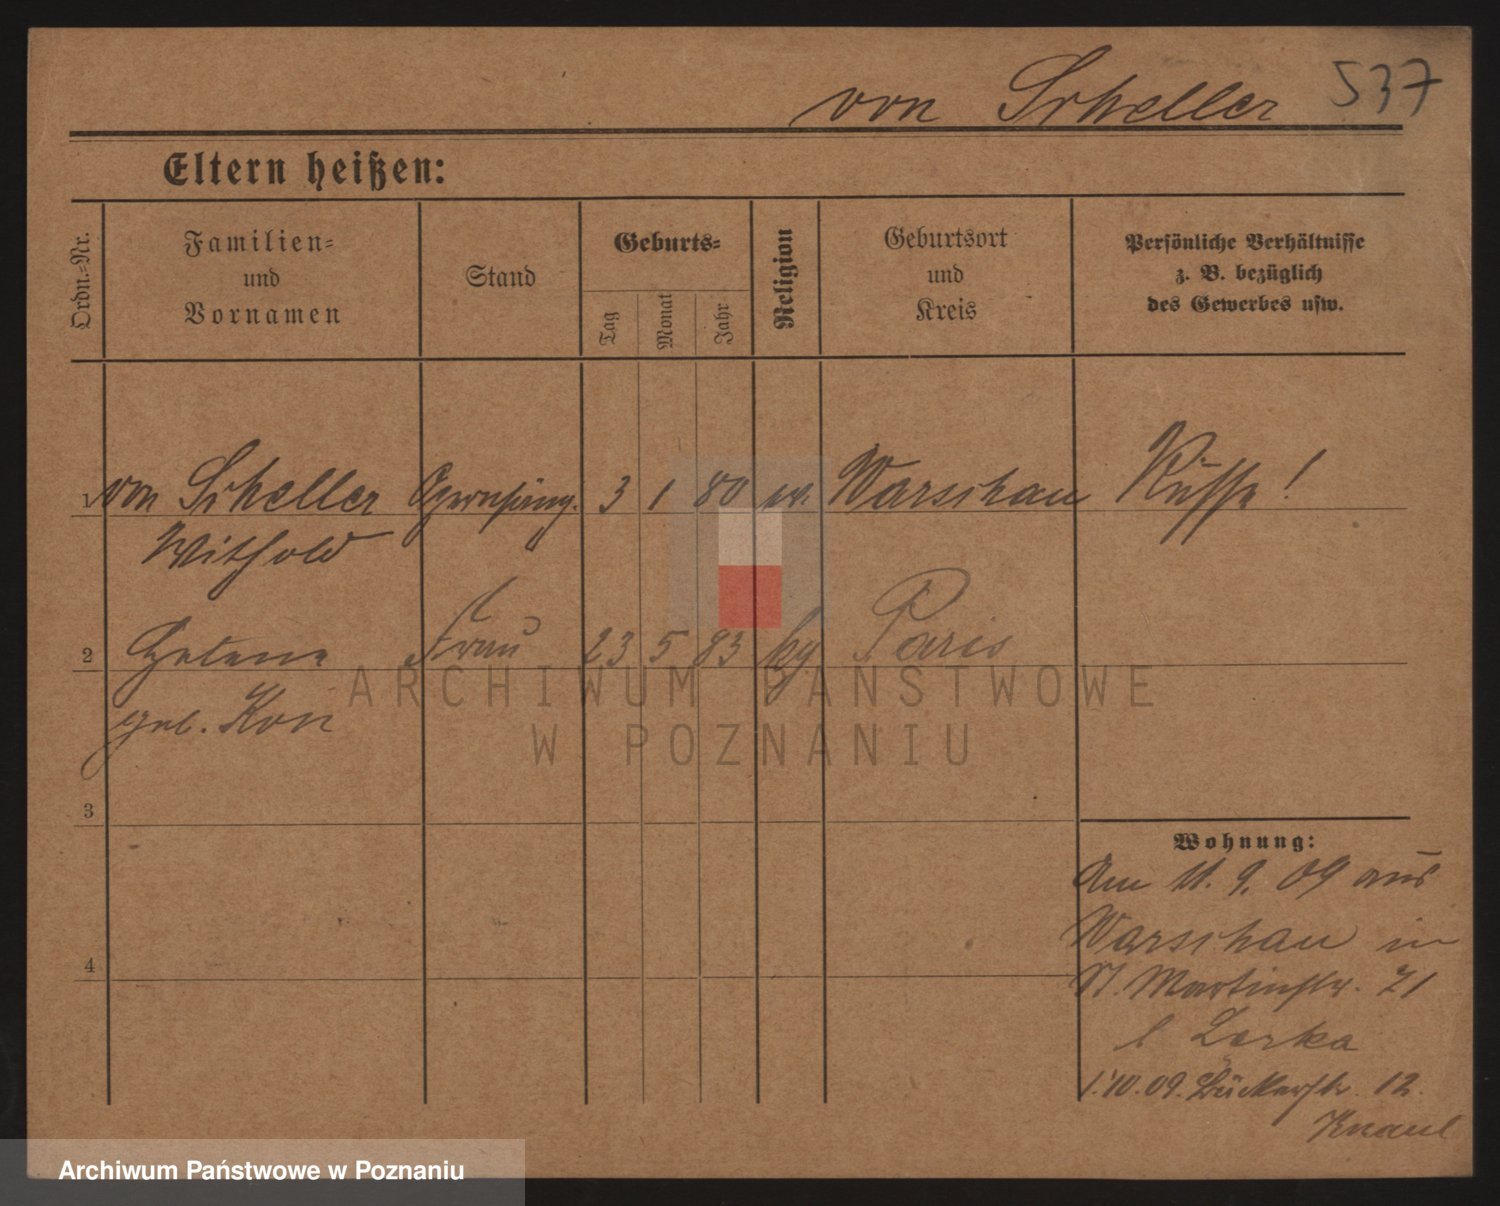 von Scheller 537
Eltern heißen:
Ordn.-Nr.
Familien-
und
Vornamen
Stand
Geburts-
Tag
Monat
Jahr
Religion
Geburtsort
und
Kreis
Persönliche Verhältnisse
z. B. bezüglich
des Gewerbes usw.
1 von Scheller Opernsäng. 3 1 80 ev. Warschau Russe!
Withold
2 Helene Frau 23 5 83 Paris
geb. Kon
3
4
Wohnung:
Am 11. 9. 09 aus
Warschau in
St. Martinstr. 21
b Zerka
1.10.09. Bäckerstr. 12.
ARCHIWUM PAŃSTWOWE
W POZNANIU
Archiwum Państwowe w Poznaniu